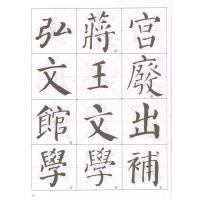 宮廢出補
蔣王文學
弘文館學